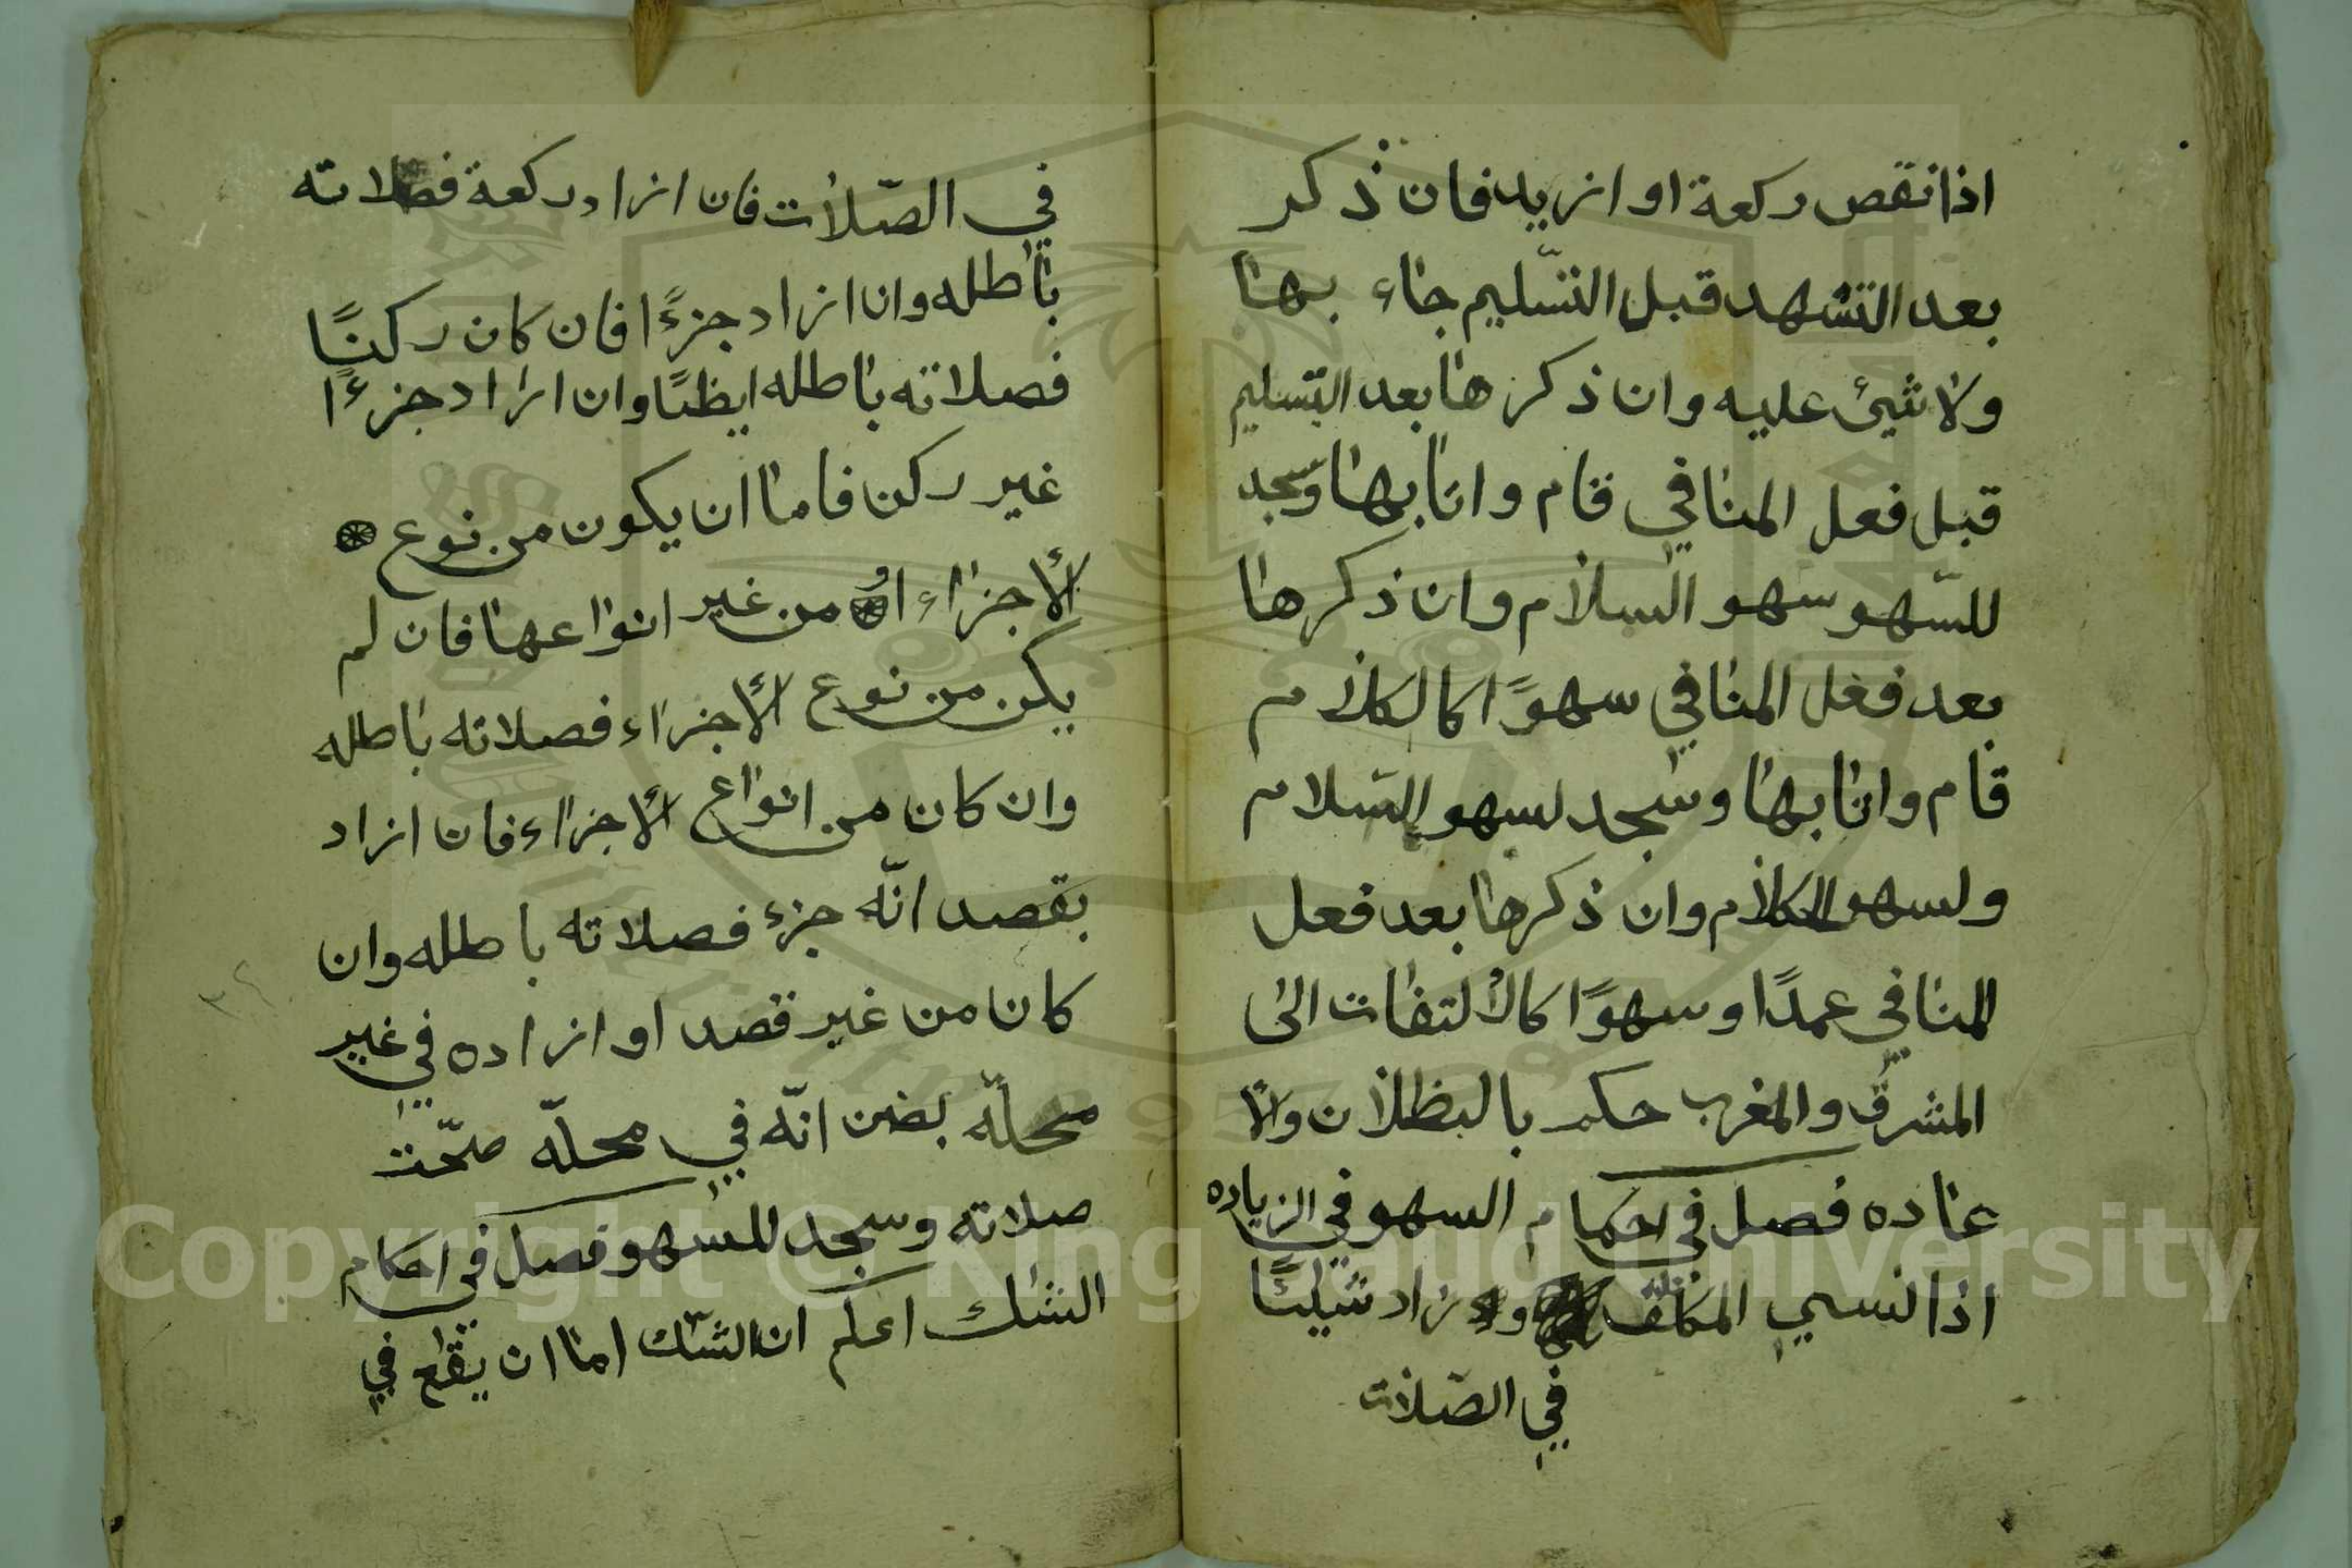 اذا نقص ركعة او ازيد فان ذكر
بعد التشهد قبل التسليم جاء بها
ولا شيئ عليه وان ذكرها بعد التسليم
قبل فعل المنافي قام واتا بها وسجد
للسهو سهو السلام وان ذكرها
بعد فعل المنافي سهوًا كالكلام
قام واتا بها وسجد لسهو السلام
ولسهو الكلام وان ذكرها بعد فعل
المنافي عمدًا وسهوًا كالألتفات الى
المشرق والمغرب حكم بالبطلان والأ
عاده فصل في احكام السهو في الزياده
اذا نسي المكلف و زاد شيئًا
في الصّلات
في الصّلات فان ازاد ركعة فصلاته
باطله وان ازاد جزءًا فان كان ركنًا
فصلاته باطله ايظًا وان ازاد جزءًا
غير ركن فاما ان يكون من نوع
الأجزاء او من غير انواعها فان لم
يكن من نوع الأجزاء فصلاته باطله
وان كان من انواع الأجزاء فان ازاد
بقصد انّه جزء فصلاته باطله وان
كان من غير قصد او ازاده في غير
محلّه بضن انّه في محلّه صحّت
صلاته وسجد للسهو فصل في احكام
الشك اعلم ان الشّك اما ان يقع في
٣٤
Copyright © King Saud University